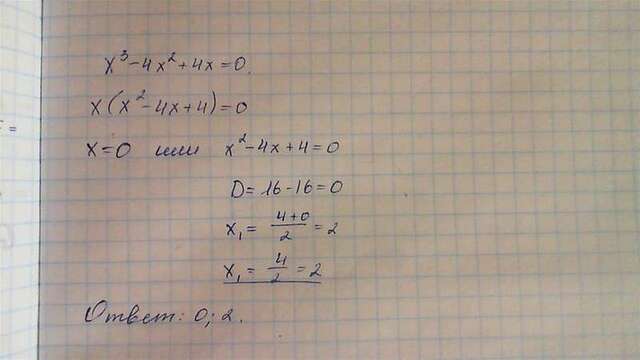 x³-4x²+4x=0.
x(x²-4x+4)=0
x=0 или x²-4x+4=0
D=16-16=0
x₁= (4+0)/2 =2
x₁= 4/2 =2
Ответ: 0; 2.